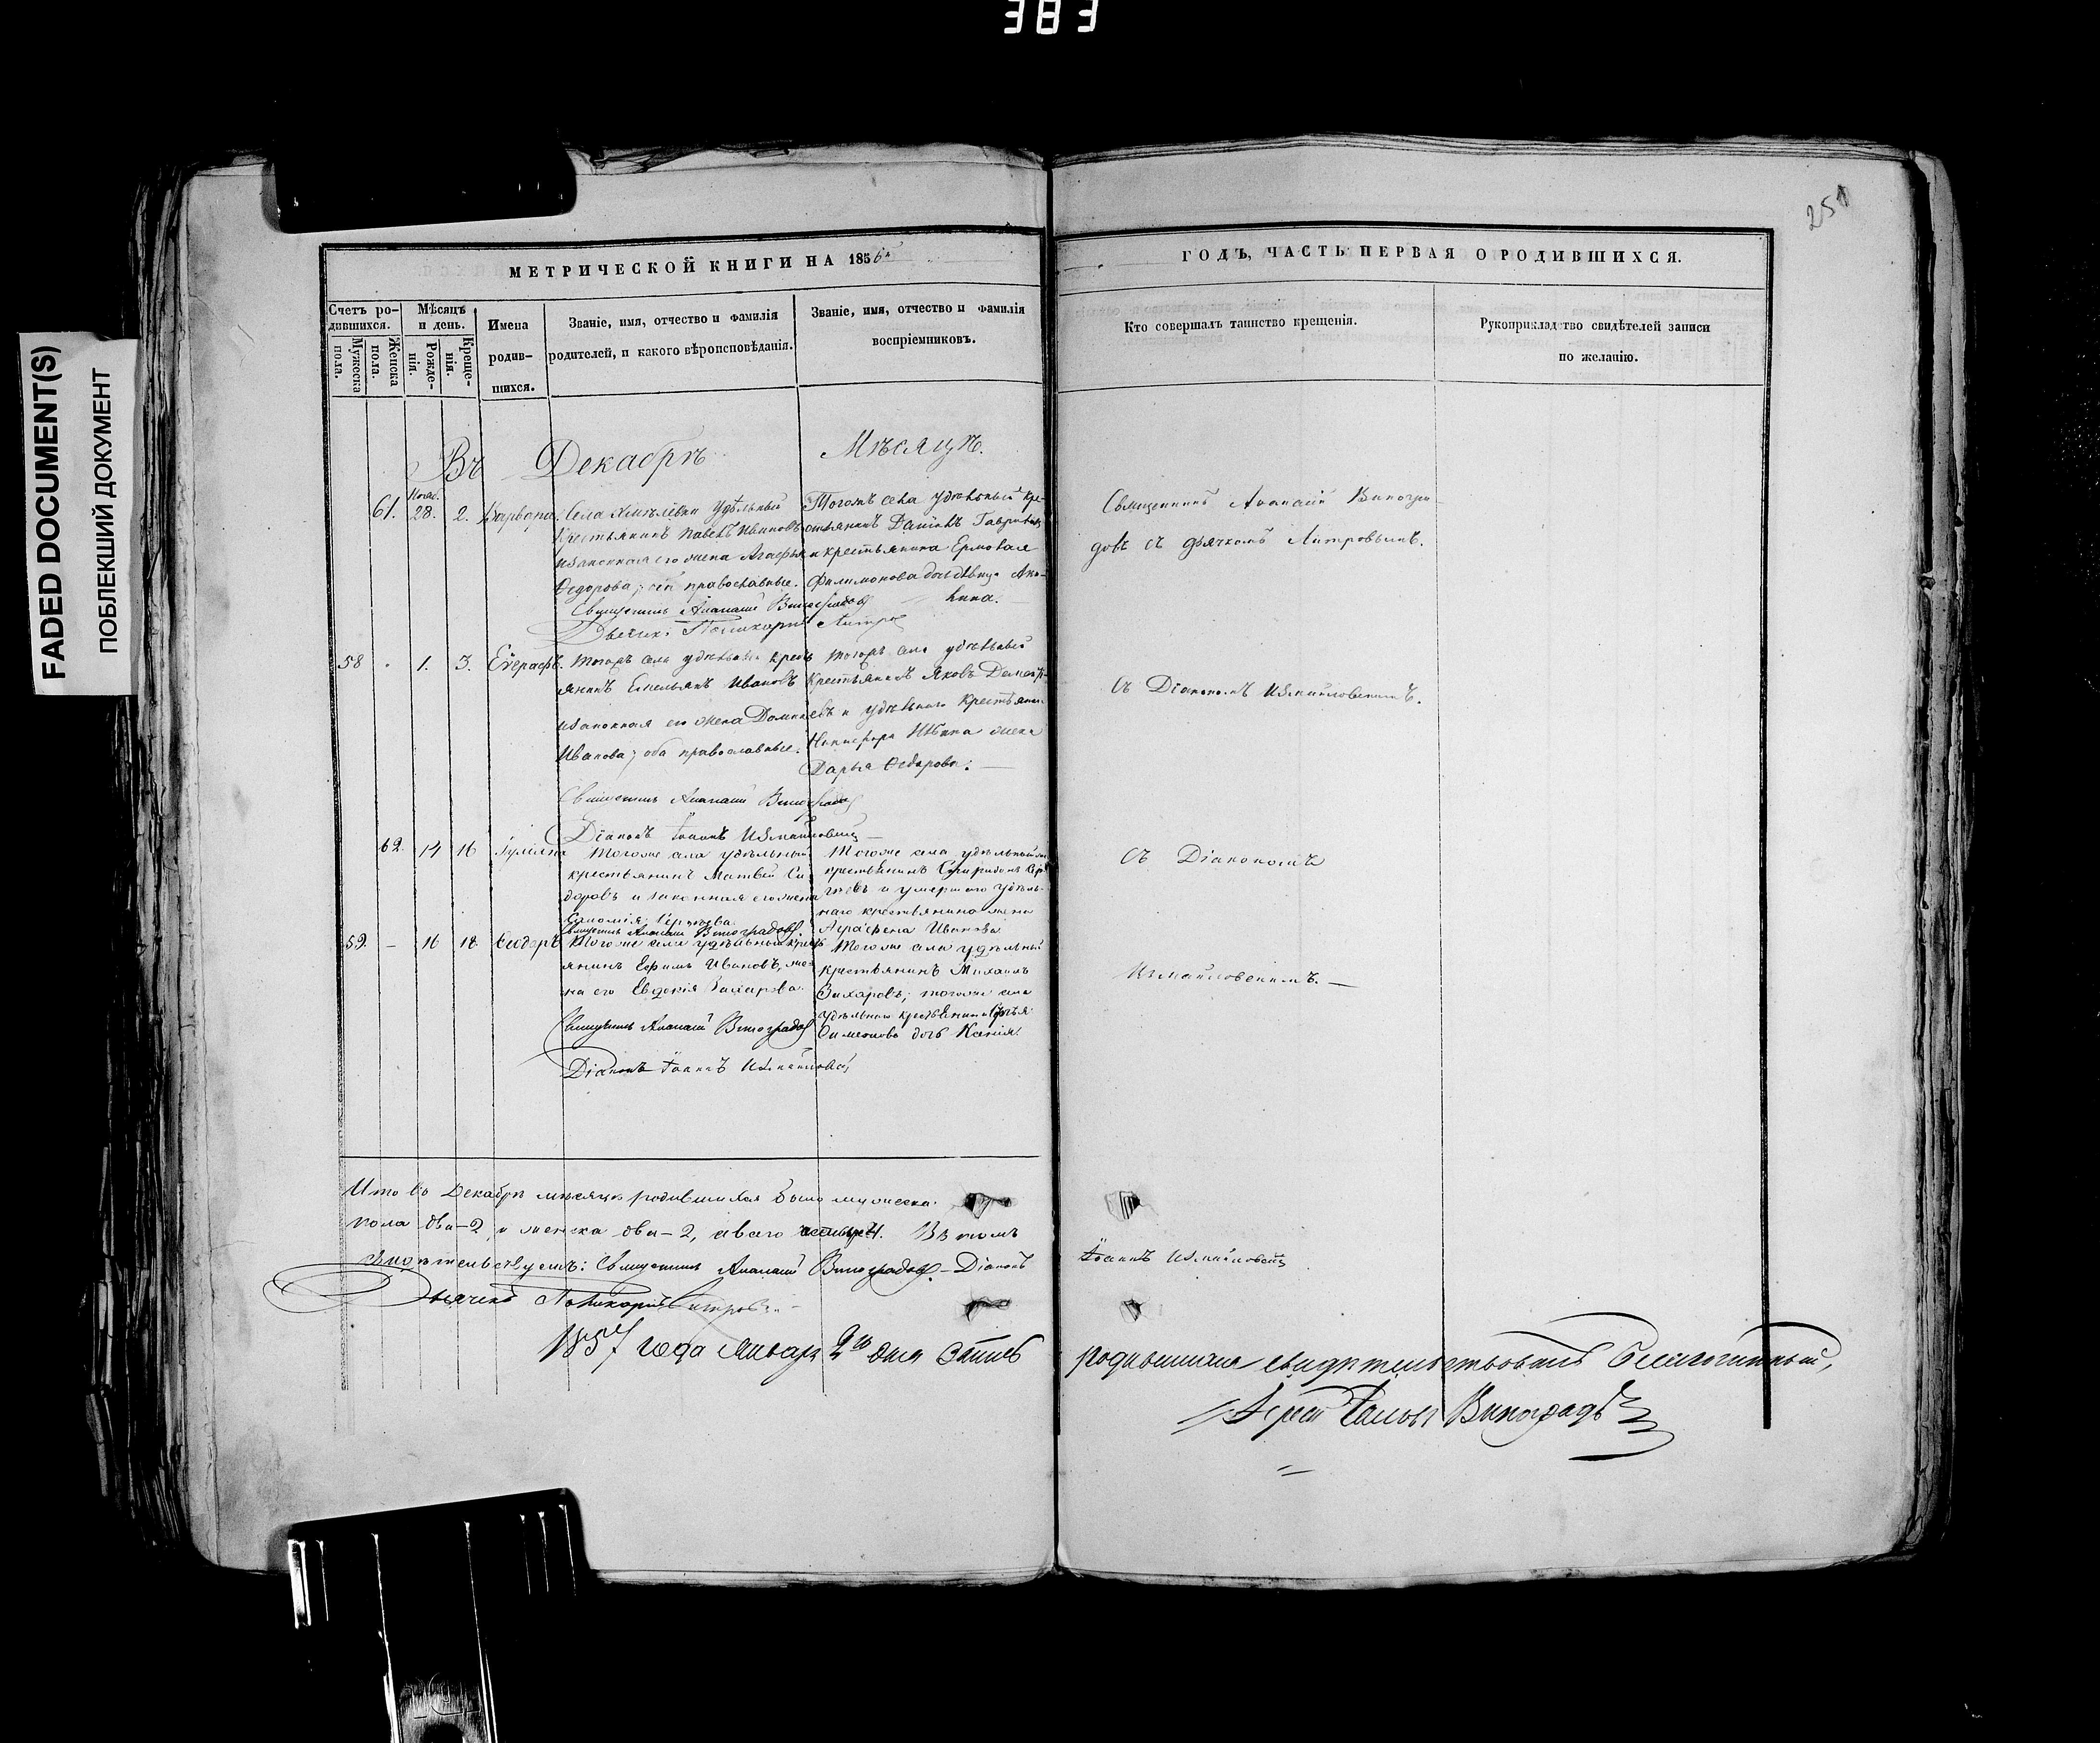 383
FADED DOCUMENT(S)
ПОБЛЕКШИЙ ДОКУМЕНТ
251
МЕТРИЧЕСКОЙ КНИГИ НА 1856
ГОДЪ, ЧАСТЬ ПЕРВАЯ О РОДИВШИХСЯ.
Счетъ ро-
дившихся.
Мужеска пола.
Женска пола.
Мѣсяцъ
и день.
Рожде-
нія.
Креще-
нія.
Имена
родив-
шихся.
Званіе, имя, отчество и фамилія
родителей, и какого вѣроисповѣданія.
Званіе, имя, отчество и фамилія
воспріемниковъ.
Кто совершалъ таинство крещенія.
Рукоприкладство свидѣтелей записи
по желанію.
Въ Декабрѣ Мѣсяцѣ.
61. Нояб. 28. 2. Варвара.
Села Удѣльный
крестьянинъ Павелъ Ивановъ
и законная его жена Агафья
Ѳедорова; оба православные.
Священникъ Аѳанасій Виноградовъ
Дьячекъ Поликарпъ
Тогожъ села удѣльный кре-
стьянинъ Даніилъ Гавриловъ
и крестьянина Ермолая
Филимонова дочь дѣвица Аку-
лина.
Священникъ Аѳанасій Виногра-
довъ съ дьячкомъ
58 1. 3. Евграфъ.
Тогожъ села удѣльный кресть
янинъ Емельянъ Ивановъ
и законная его жена Домна
Иванова; оба православные.
Священникъ Аѳанасій Виноградовъ
Діаконъ Іоаннъ Измайловскій
Тогожъ села удѣльный
крестьянинъ Яковъ
и удѣльнаго крестьяни
Никифора Ильина жена
Дарья Ѳедорова.
Съ Діакономъ Измайловскимъ.
62. 14 16 Іуліяна
Тогоже села удѣльный
крестьянинъ Матвей Си
доровъ и законная его жена
Сергѣева.
Священникъ Аѳанасій Виноградовъ.
Тогоже села удѣльный
крестьянинъ Спиридонъ Сер
гѣевъ и умершаго удѣль-
наго крестьянина жена
Аграфена Иванова
Съ Діакономъ
59. – 16 18 Ѳеодоръ
Тогоже села удѣльный кресть
янинъ Ефимъ Ивановъ, же
на его Евдокія Захарова.
Священникъ Аѳанасій Виноградовъ
Діаконъ Іоаннъ Измайловскій
Тогоже села удѣльный
крестьянинъ Михаилъ
Захаровъ; тогоже села
удѣльнаго крестьянина
Симеонова дочь Ксенія.
Измайловскимъ.
Итого въ Декабрѣ мѣсяцѣ родившихся было мужеска
пола два–2, и женска два–2, а всего 4. Въ томъ
свидѣтельствуемъ: Священникъ Аѳанасій Виноградовъ. – Діаконъ
Іоаннъ Измайловскій
Дьячекъ Поликарпъ
1857 года Января 2го дня
родившихся свидѣтельствовалъ Благочинный,
Іерей Виноградовъ